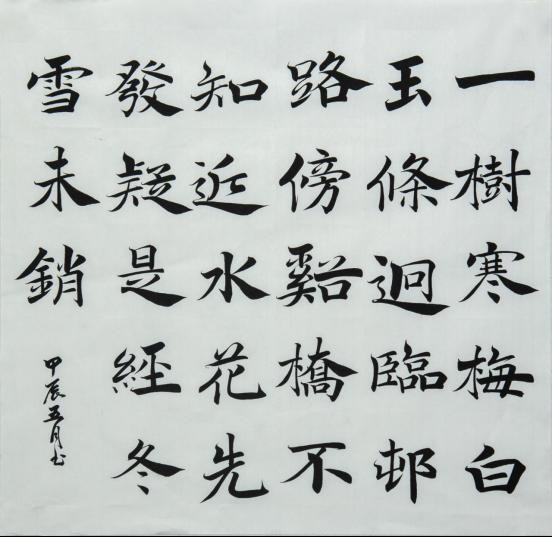 一樹寒梅白
玉條迥臨邨
路傍谿橋不
知近水花先
發疑是經冬
雪未銷
甲辰五月書